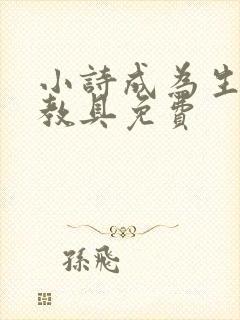 小詩成為生
教具免費
孫飛